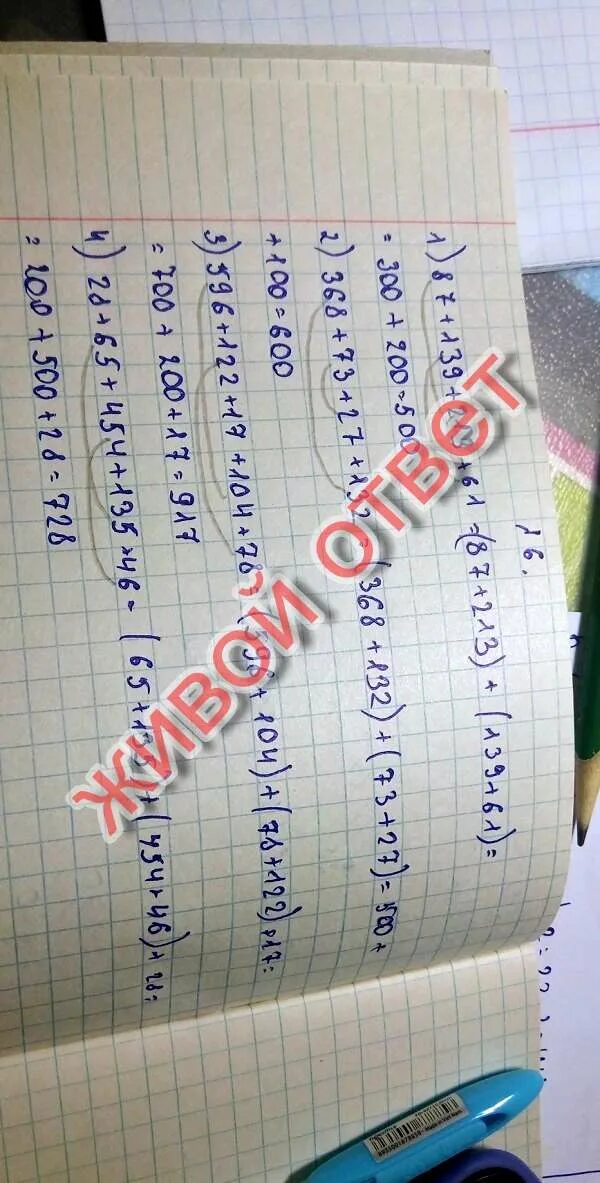 16.
1) 87+139+213+61=(87+213)+(139+61)=
=300+200=500
2) 368+73+27+132=(368+132)+(73+27)=500+
+100=600
3) 596+122+17+104+78=(596+104)+(78+122)+17=
=700+200+17=917
4) 28+65+454+135+46=(65+135)+(454+46)+28=
=200+500+28=728
ЖИВОЙ ОТВЕТ